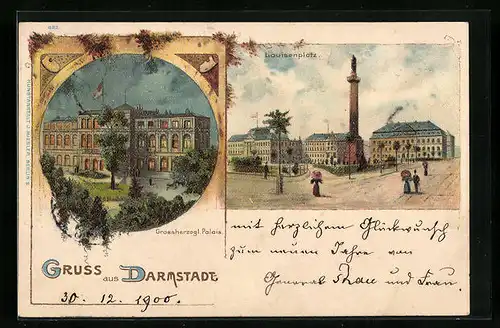 Louisenplatz.
Grossherzogl. Palais.
GRUSS aus DARMSTADT
30. 12. 1900.
mit herzlichem Glückwunsch
zum neuen Jahre von
General und Frau.